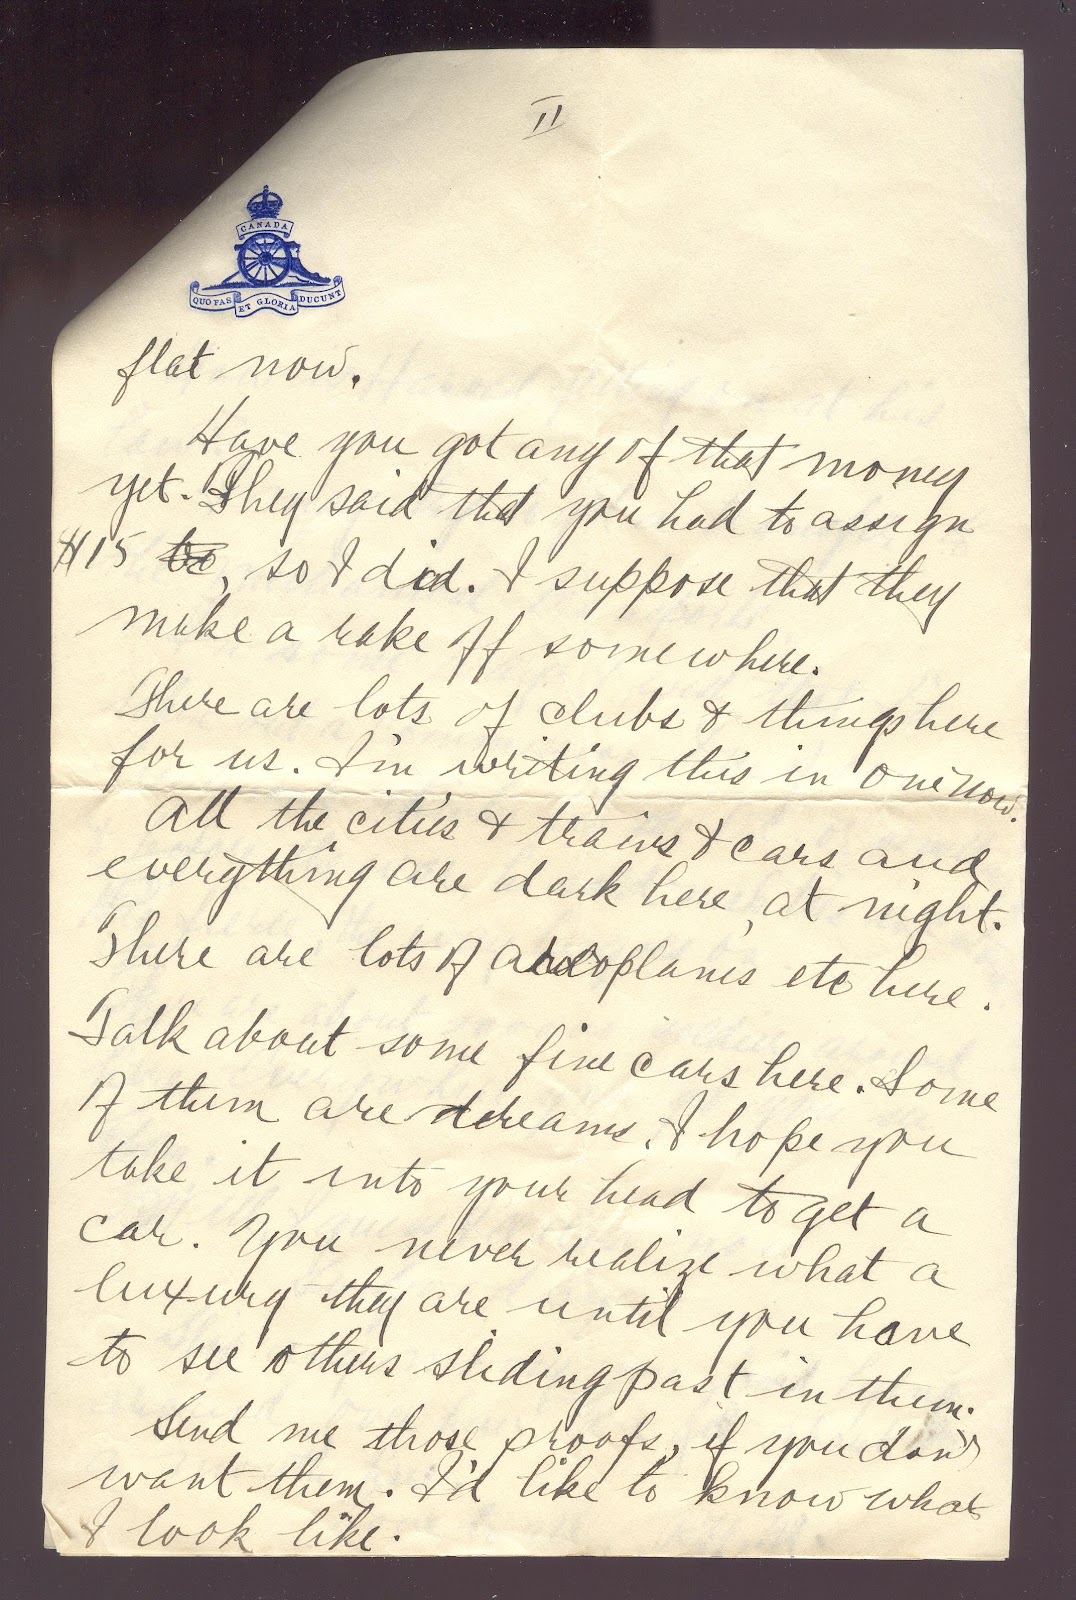 II
CANADA
QUO FAS ET GLORIA DUCUNT
flat now.
Have you got any of that money
yet. They said that you had to assign
$15 to, so I did. I suppose that they
make a rake off somewhere.
There are lots of clubs & things here
for us. I'm writing this in one now.
All the cities & trains & cars and
everything are dark here, at night.
There are lots of aeroplanes etc here.
Talk about some fine cars here. Some
of them are dreams. I hope you
take it into your head to get a
car. You never realize what a
luxury they are until you have
to see others sliding past in them.
Send me those proofs, if you don't
want them. I'd like to know what
I look like.